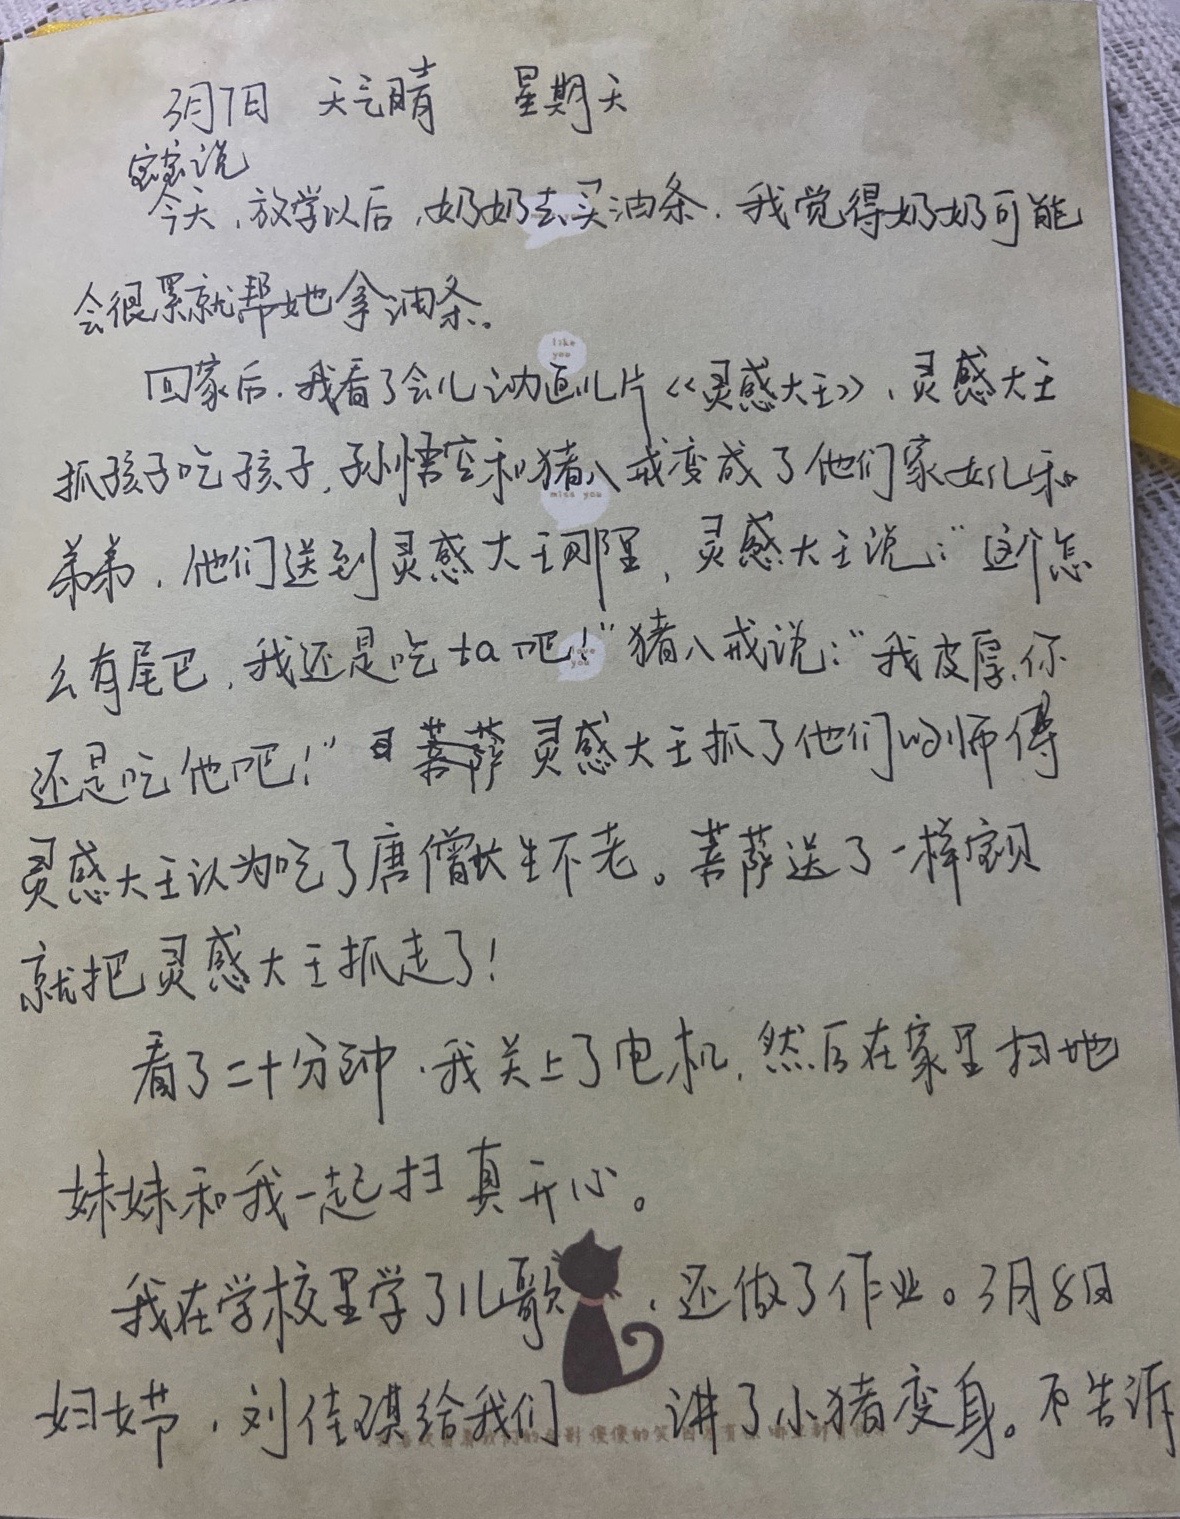 3月7日 天气晴 星期天
宝宝说
今天,放学以后,奶奶去买油条.我觉得奶奶可能
会很累就帮她拿油条。
like
you
回家后.我看了会儿动画片《灵感大王》,灵感大王
抓孩子吃孩子,孙悟空和猪八戒变成了他们家女儿和
miss you
弟弟,他们送到灵感大王那里,灵感大王说:“这个怎
么有尾巴,我还是吃ta吧!”猪八戒说:“我皮厚,你
love
you
还是吃他吧!” 菩萨 灵感大王抓了他们的师傅
灵感大王认为吃了唐僧长生不老。菩萨送了一样宝贝
就把灵感大王抓走了!
看了二十分钟.我关上了电机,然后在家里扫地
妹妹和我一起扫真开心。
我在学校里学了儿歌,还做了作业。3月8日
妇女节,刘佳琪给我们讲了小猪变身。不告诉